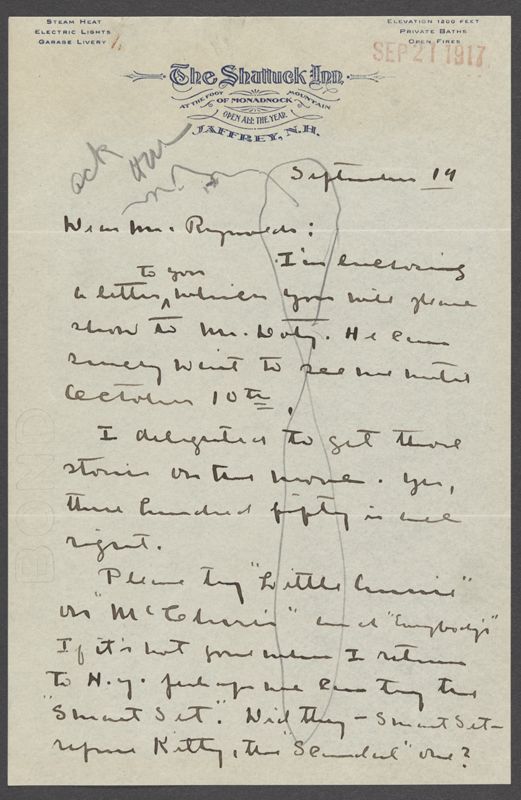 STEAM HEAT
ELECTRIC LIGHTS
GARAGE LIVERY
ELEVATION 1200 FEET
PRIVATE BATHS
OPEN FIRES
SEP 21 1917
The Shattuck Inn
AT THE FOOT OF MONADNOCK MOUNTAIN
OPEN ALL THE YEAR
JAFFREY, N.H.
ack
September 19
Dear Mr. Reynolds:
I'm enclosing
a letter, to you which you will please
show to Mr. Doty. He can
surely wait to see me until
October 10th.
I delighted to get those
stories on the move. Yes,
three hundred fifty is all
right.
Please try "Little Annie"
on "McClure's" and "Everybody's"
If it's not gone when I return
to N.Y. perhaps we can try the
"Smart Set". Did they - Smart Set -
refuse Kitty, the "Scandal" one?
BOND